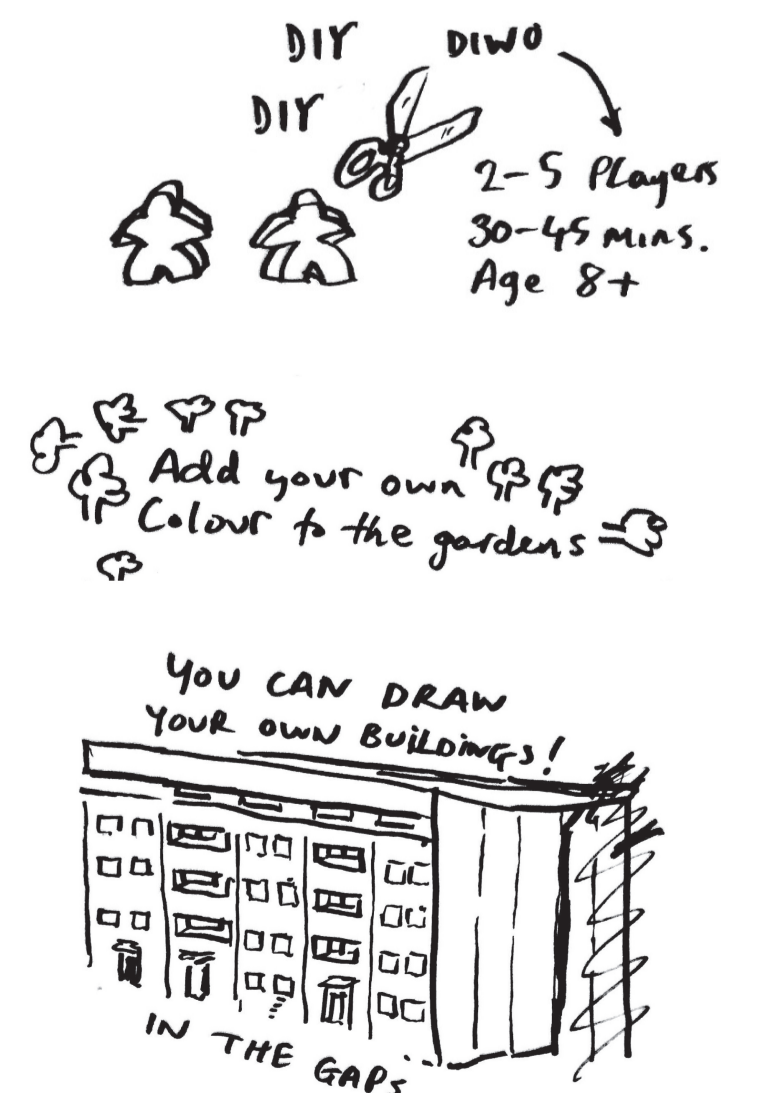 DIY DIWO
DIY
2-5 Players
30-45 mins.
Age 8+
Add your own
Colour to the gardens
YOU CAN DRAW
YOUR OWN BUILDINGS!
IN THE GAPS